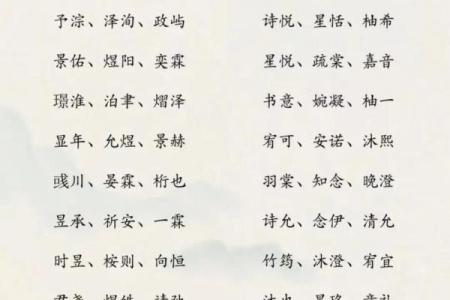 予淙、泽洵、政屿 诗悦、星恬、柚希
景佑、煜阳、奕霖 星悦、疏棠、嘉音
璟淮、泊聿、熠泽 书意、婉凝、柚一
显年、允煜、景赫 宥可、安诺、沐熙
彧川、晏霖、桁也 羽棠、知念、晚澄
昱承、祈安、一霖 诗允、念伊、清允
时昱、桉则、向恒 竹筠、沐澄、宥宜